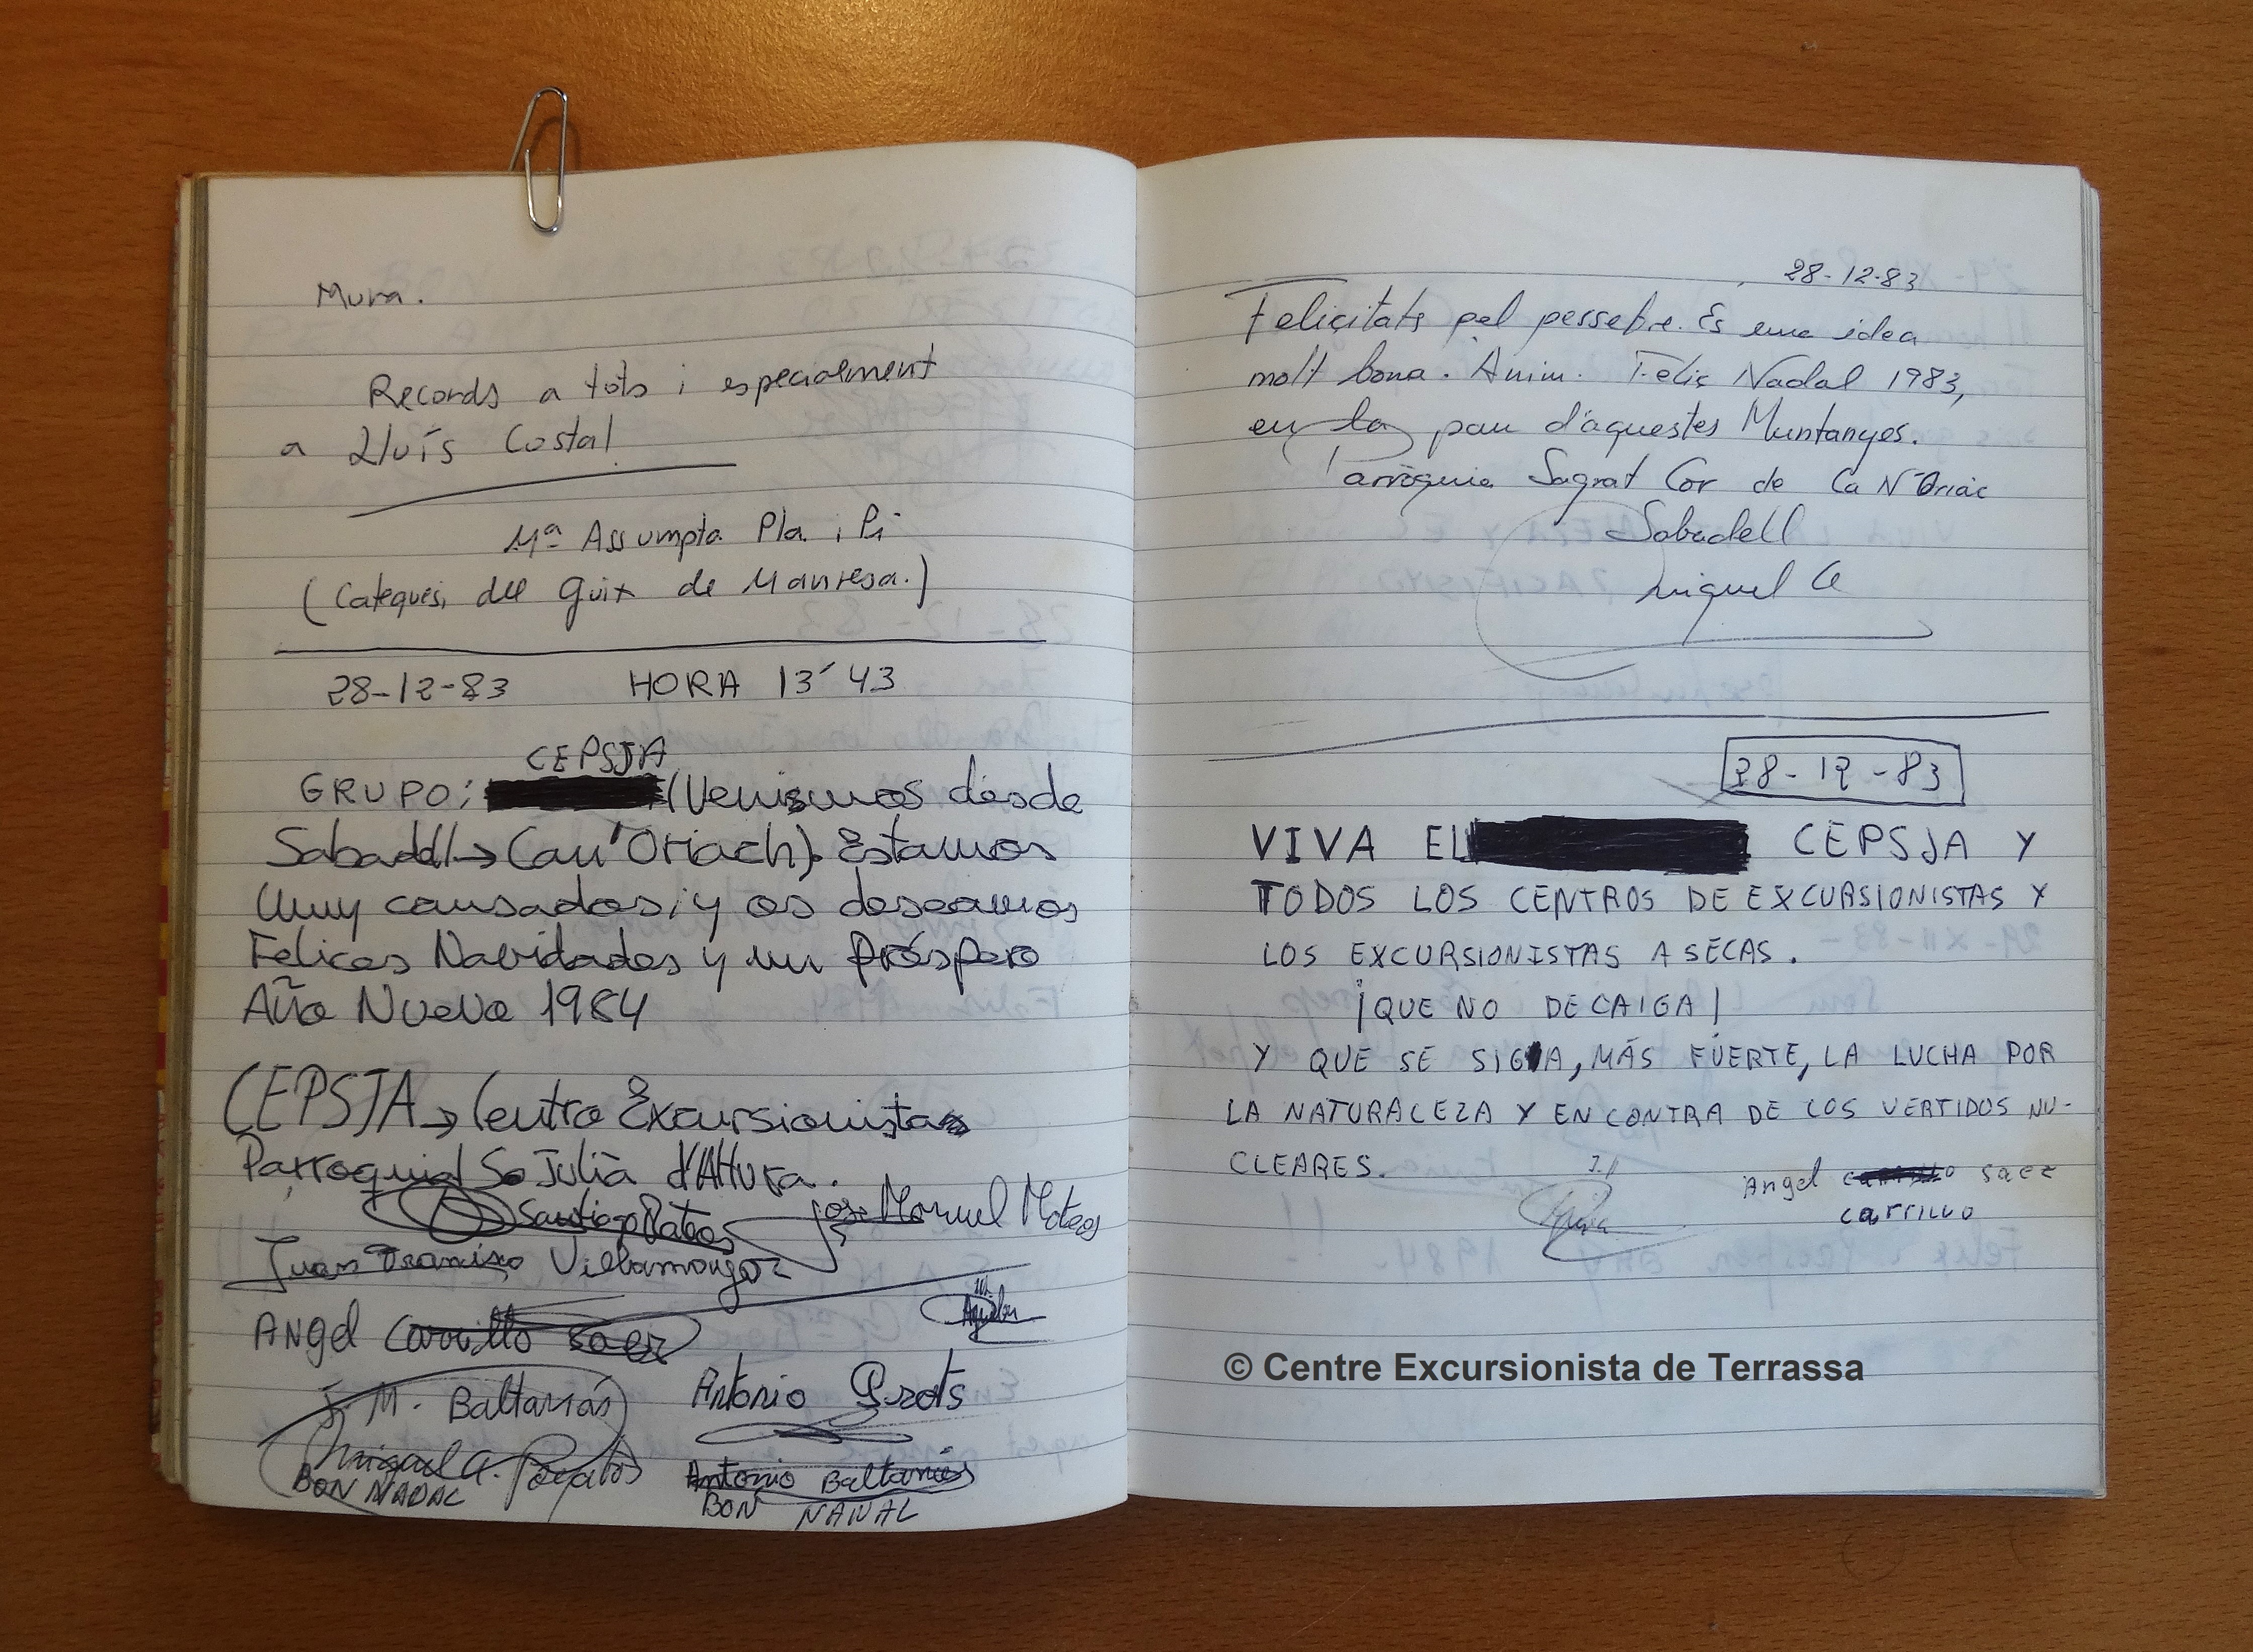 Mura.
Records a tots i especialment
a Lluís Costal
Mª Assumpta Pla i Pi
(Catequesi del Guix de Manresa.)
28-12-83 HORA 13´43
CEPSJA
GRUPO: (Venimos desde
Sabadell→Can'Oriach). Estamos
muy cansados, y os deseamos
Felices Navidades y un próspero
Año Nuevo 1984
CEPSJA→Centro Excursionista
Parroquial St Julià d'Altura.
Santiago Mateos José Manuel Mateos
Juan Francisco Villamayor
Angel Carrillo Saez
J. M. Baltanás Antonio
Miguel A. Antonio Baltanás
BON NADAL BON NADAL
28-12-83
Felicitats pel pessebre. Es una idea
molt bona. Anim. Feliç Nadal 1983,
en la pau d'aquestes Muntanyes.
Parròquia Sagrat Cor de Ca N'Oriac
Sabadell
Miquel
28-12-83
VIVA EL CEPSJA Y
TODOS LOS CENTROS DE EXCURSIONISTAS Y
LOS EXCURSIONISTAS A SECAS.
¡QUE NO DECAIGA!
Y QUE SE SIGA, MÁS FUERTE, LA LUCHA POR
LA NATURALEZA Y EN CONTRA DE LOS VERTIDOS NU-
CLEARES.
Angel saez
carrillo
© Centre Excursionista de Terrassa